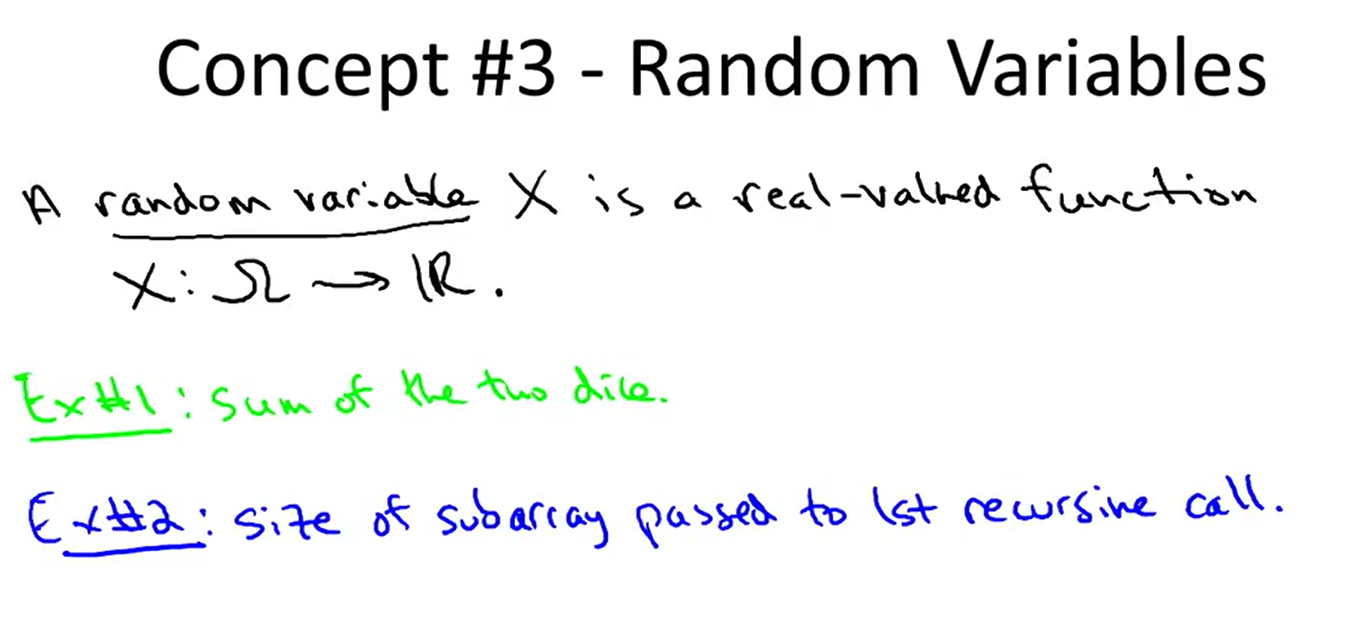 Concept #3 - Random Variables
A random variable X is a real-valued function
X: Ω → ℝ.
Ex#1: sum of the two dice.
Ex#2: size of subarray passed to 1st recursive call.